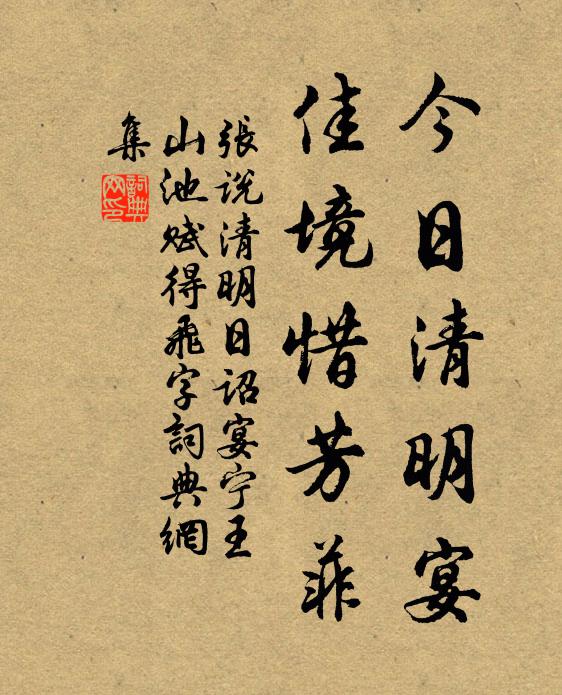 今日清明宴
佳境惜芳菲
張說清明日詔宴宁王
山池赋得飛字詞典網
集
詞典網印